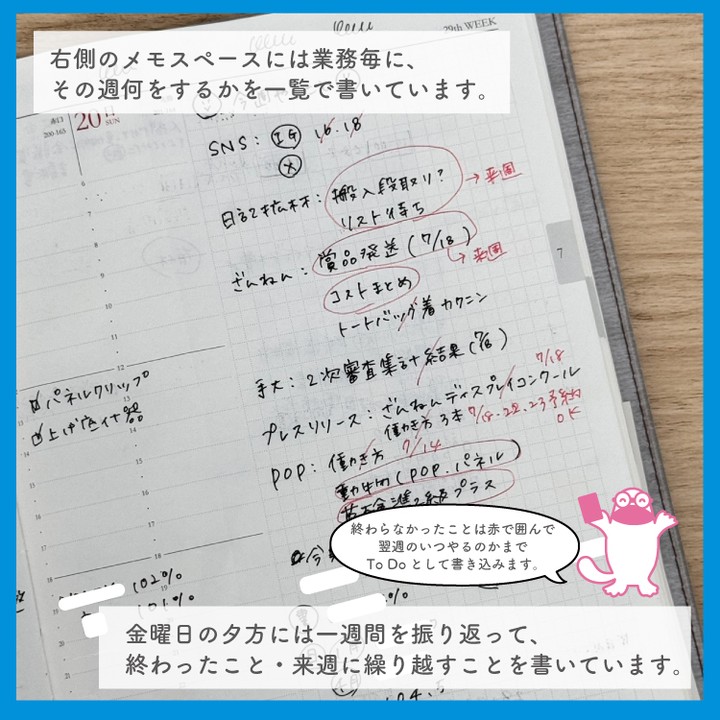 右側のメモスペースには業務毎に、
その週何をするかを一覧で書いています。
29th WEEK
赤口
200-165
20日
SUN
SNS: IG 16.18
X
搬入段取り? → 来週
リスト待ち
ざんねん: 賞品発送 (7/18) → 来週
コストまとめ
トートバッグ着 カクニン
7
手大: 2次審査集計結果 (7/18)
7/18
プレスリリース: ざんねんディスプレイコンクール
働き方 3本 7/18.22.23予約
OK
POP: 働き方 7/14
(POP.パネル)
プラス
パネルクリップ
上げ底什器
6
7
8
9
10
11
12
13
14
15
16
17
18
19
20
102%
101%
終わらなかったことは赤で囲んで
翌週のいつやるのかまで
To Do として書き込みます。
金曜日の夕方には一週間を振り返って、
終わったこと・来週に繰り越すことを書いています。